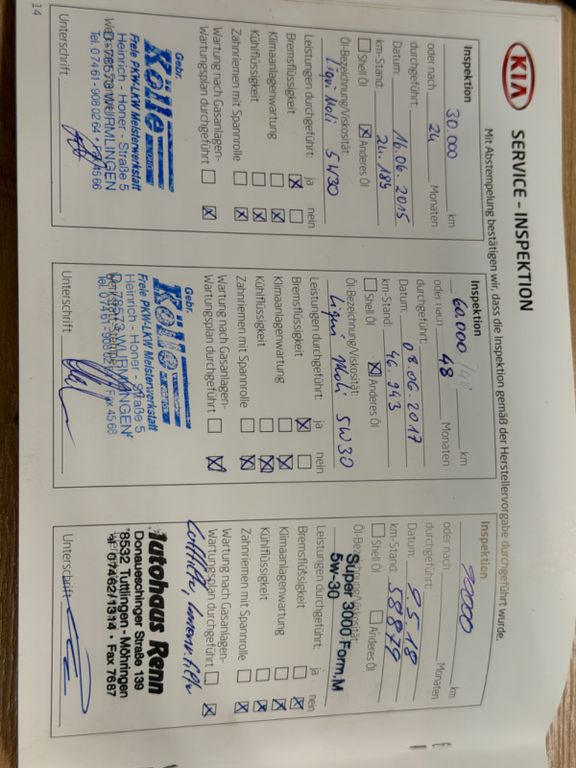 KIA
SERVICE - INSPEKTION
Mit Abstempelung bestätigen wir, dass die Inspektion gemäß der Herstellervorgabe durchgeführt wurde.
Inspektion
30.000 km
oder nach 24 Monaten
durchgeführt:
Datum: 16.06.2015
km-Stand: 24.189
Shell Öl Anderes Öl
Öl-Bezeichnung/Viskosität:
Liqui Moli 5W30
Leistungen durchgeführt: ja nein
Bremsflüssigkeit
Klimaanlagenwartung
Kühlflüssigkeit
Zahnriemen mit Spannrolle
Wartung nach Gasanlagen-
Wartungsplan durchgeführt
Gebr.
Kölle
Freie PKW-LKW Meisterwerkstatt
Heinrich - Honer - Straße 5
D-78573 WURMLINGEN
Tel. 0 74 61 - 908 02 64 • Fax 45 66
Unterschrift
Inspektion
60.000 km
oder nach 48 Monaten
durchgeführt:
Datum: 08.06.2017
km-Stand: 46.943
Shell Öl Anderes Öl
Öl-Bezeichnung/Viskosität:
Liqui Moli 5W30
Leistungen durchgeführt: ja nein
Bremsflüssigkeit
Klimaanlagenwartung
Kühlflüssigkeit
Zahnriemen mit Spannrolle
Wartung nach Gasanlagen-
Wartungsplan durchgeführt
Gebr.
Kölle
Freie PKW-LKW Meisterwerkstatt
Heinrich - Honer - Straße 5
D-78573 WURMLINGEN
Tel. 0 74 61 - 908 02 Fax 45 66
Unterschrift
Inspektion
90000 km
oder nach Monaten
durchgeführt:
Datum: 9.5.18
km-Stand: 58879
Shell Öl Anderes Öl
Öl-Bezeichnung/Viskosität:
Super 3000 Form.M
5w-30
Leistungen durchgeführt: ja nein
Bremsflüssigkeit
Klimaanlagenwartung
Kühlflüssigkeit
Zahnriemen mit Spannrolle
Wartung nach Gasanlagen-
Wartungsplan durchgeführt
Autohaus Renn
Donaueschinger Straße 139
78532 Tuttlingen - Möhringen
07462/1314 • Fax 7687
Unterschrift
14